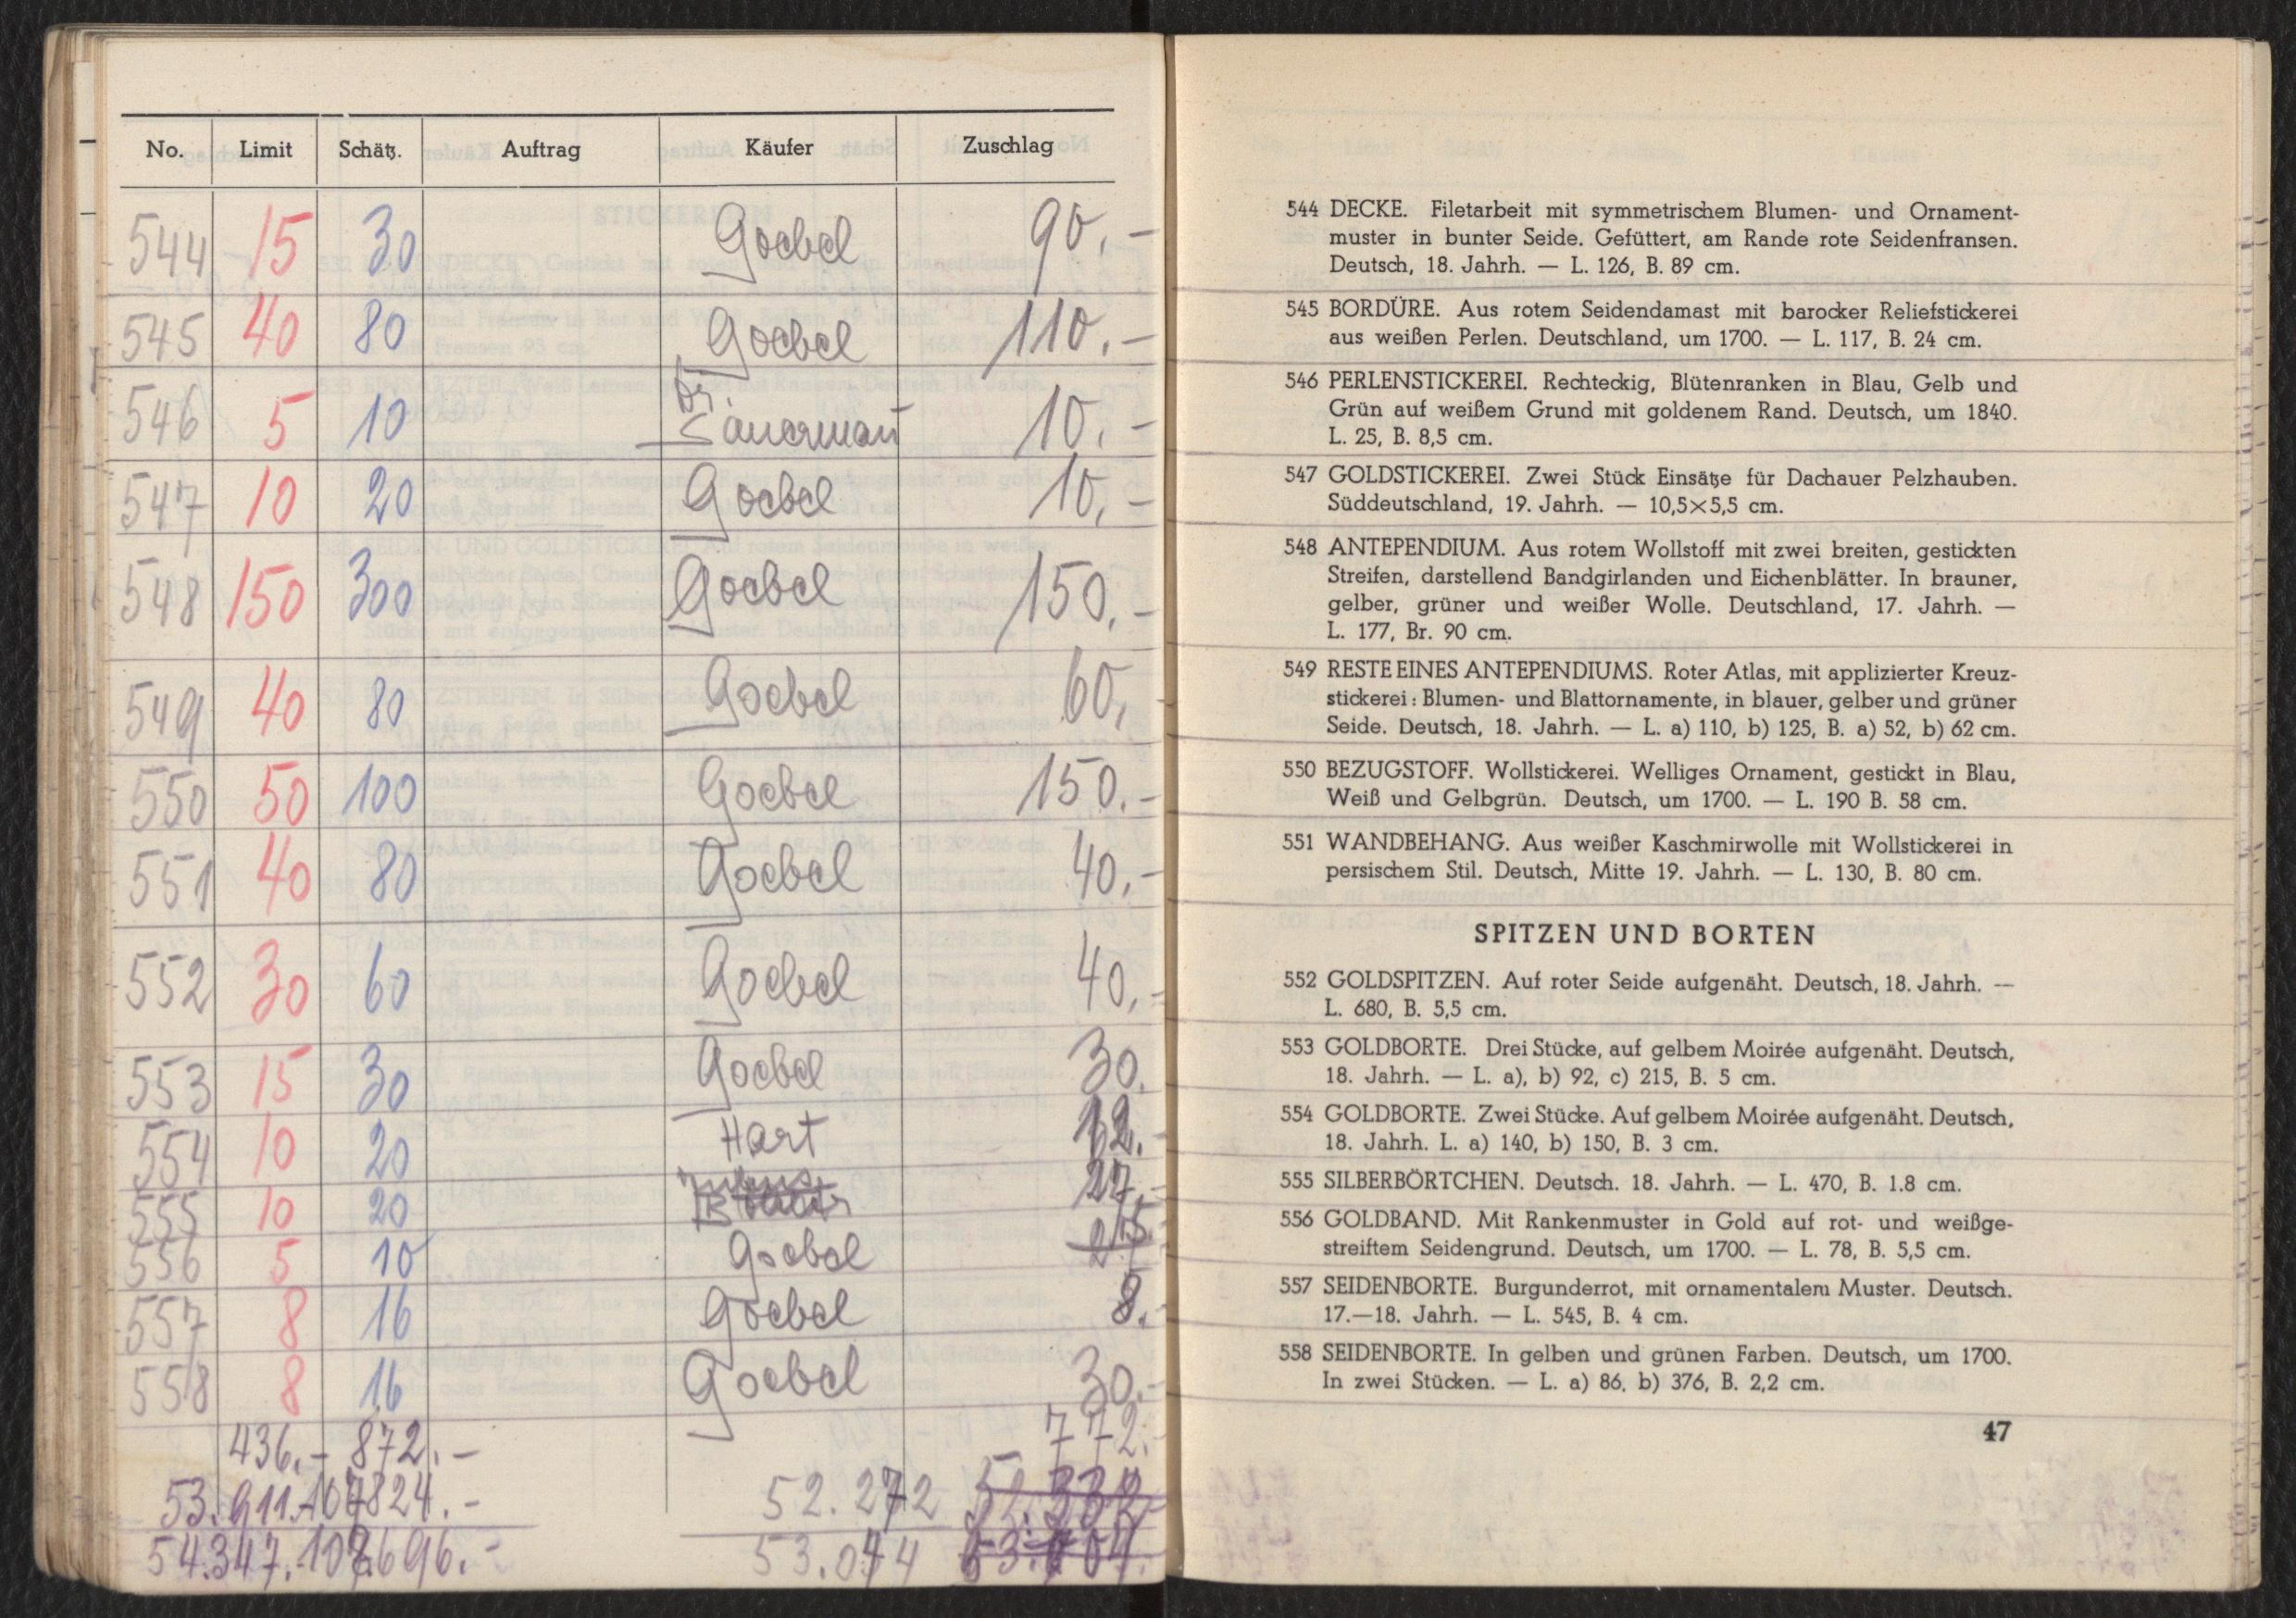 No. Limit Schätz. Auftrag Käufer Zuschlag
544 15 30 Goebel 90.-
545 40 80 Goebel 110.-
546 5 10 Dr. Sauermann 10.-
547 10 20 Goebel 10.-
548 150 300 Goebel 150.-
549 40 80 Goebel 60.-
550 50 100 Goebel 150.-
551 40 80 Goebel 40.-
552 30 60 Goebel 40.-
553 15 30 Goebel 30.
554 10 20 Hart 12.-
555 10 20 27.-
556 5 10 Goebel
557 8 16 Goebel 8.-
558 8 16 Goebel 30.-
436.- 872.- 772.-
53.911.- 107824.- 52.272 52.332
54.347.- 108696.- 53.044
544 DECKE. Filetarbeit mit symmetrischem Blumen- und Ornament-
muster in bunter Seide. Gefüttert, am Rande rote Seidenfransen.
Deutsch, 18. Jahrh. — L. 126, B. 89 cm.
545 BORDÜRE. Aus rotem Seidendamast mit barocker Reliefstickerei
aus weißen Perlen. Deutschland, um 1700. — L. 117, B. 24 cm.
546 PERLENSTICKEREI. Rechteckig, Blütenranken in Blau, Gelb und
Grün auf weißem Grund mit goldenem Rand. Deutsch, um 1840.
L. 25, B. 8,5 cm.
547 GOLDSTICKEREI. Zwei Stück Einsätze für Dachauer Pelzhauben.
Süddeutschland, 19. Jahrh. — 10,5×5,5 cm.
548 ANTEPENDIUM. Aus rotem Wollstoff mit zwei breiten, gestickten
Streifen, darstellend Bandgirlanden und Eichenblätter. In brauner,
gelber, grüner und weißer Wolle. Deutschland, 17. Jahrh. —
L. 177, Br. 90 cm.
549 RESTE EINES ANTEPENDIUMS. Roter Atlas, mit applizierter Kreuz-
stickerei: Blumen- und Blattornamente, in blauer, gelber und grüner
Seide. Deutsch, 18. Jahrh. — L. a) 110, b) 125, B. a) 52, b) 62 cm.
550 BEZUGSTOFF. Wollstickerei. Welliges Ornament, gestickt in Blau,
Weiß und Gelbgrün. Deutsch, um 1700. — L. 190 B. 58 cm.
551 WANDBEHANG. Aus weißer Kaschmirwolle mit Wollstickerei in
persischem Stil. Deutsch, Mitte 19. Jahrh. — L. 130, B. 80 cm.
SPITZEN UND BORTEN
552 GOLDSPITZEN. Auf roter Seide aufgenäht. Deutsch, 18. Jahrh. —
L. 680, B. 5,5 cm.
553 GOLDBORTE. Drei Stücke, auf gelbem Moirée aufgenäht. Deutsch,
18. Jahrh. — L. a), b) 92, c) 215, B. 5 cm.
554 GOLDBORTE. Zwei Stücke. Auf gelbem Moirée aufgenäht. Deutsch,
18. Jahrh. L. a) 140, b) 150, B. 3 cm.
555 SILBERBÖRTCHEN. Deutsch. 18. Jahrh. — L. 470, B. 1.8 cm.
556 GOLDBAND. Mit Rankenmuster in Gold auf rot- und weißge-
streiftem Seidengrund. Deutsch, um 1700. — L. 78, B. 5,5 cm.
557 SEIDENBORTE. Burgunderrot, mit ornamentalem Muster. Deutsch.
17.—18. Jahrh. — L. 545, B. 4 cm.
558 SEIDENBORTE. In gelben und grünen Farben. Deutsch, um 1700.
In zwei Stücken. — L. a) 86, b) 376, B. 2,2 cm.
47